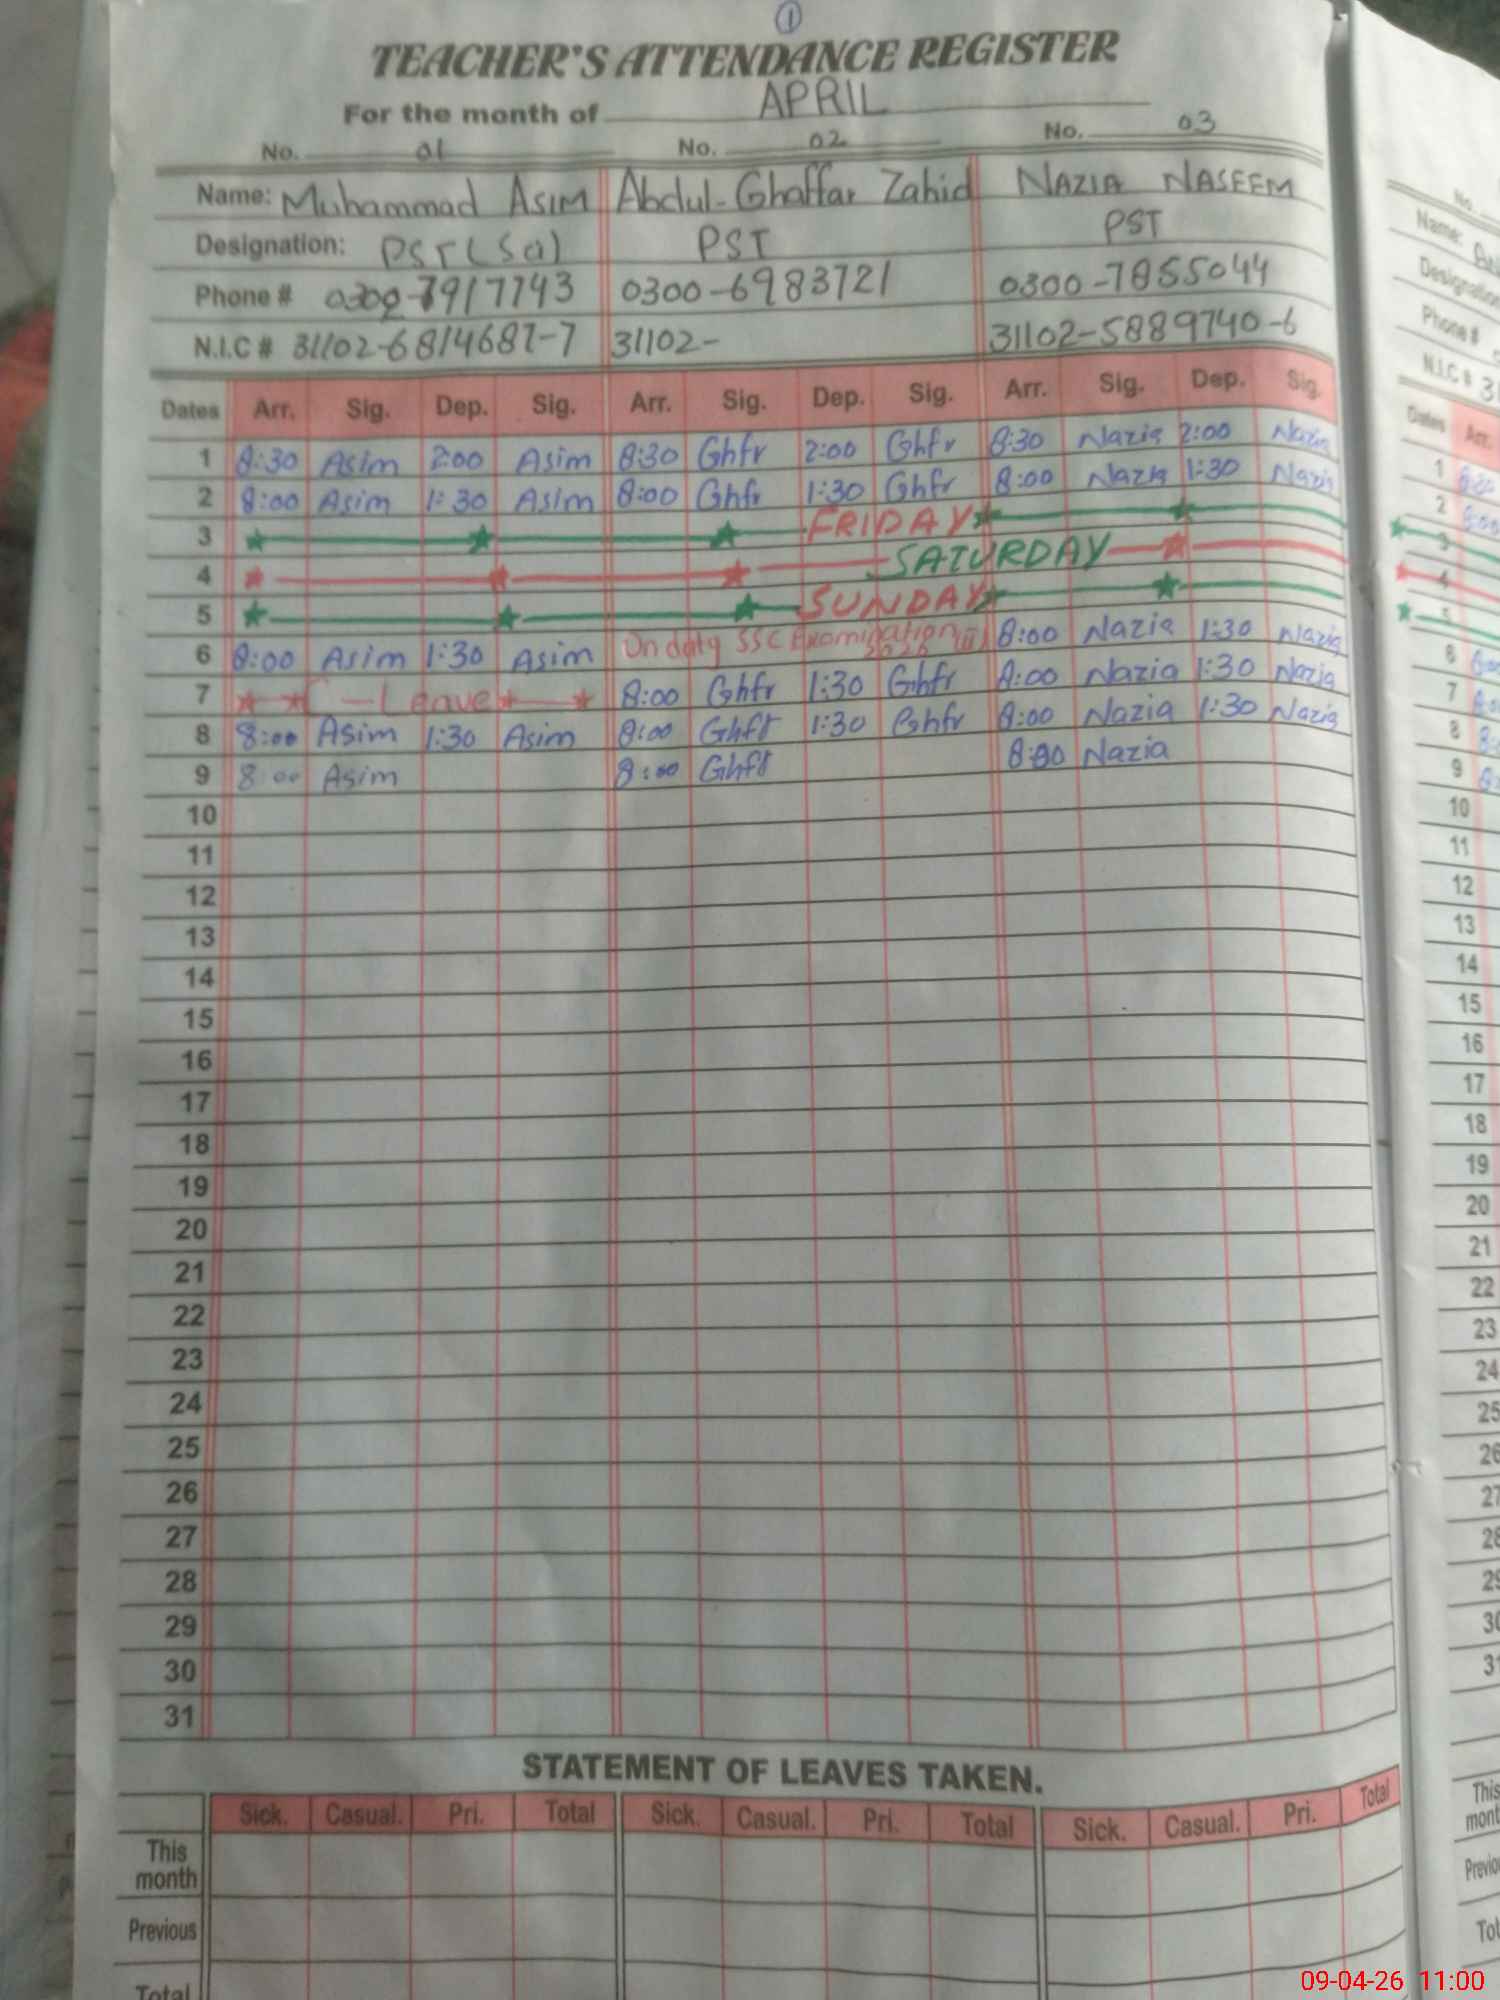 1
TEACHER'S ATTENDANCE REGISTER
For the month of APRIL
No. 01 No. 02 No. 03
Name: Muhammad Asim Abdul-Ghaffar Zahid NAZIA NASEEM
Designation: PST(SQ) PST PST
Phone # 0302-7917743 0300-6983721 0300-7855044
N.I.C # 31102-6814687-7 31102- 31102-5889740-6
Dates Arr. Sig. Dep. Sig. Arr. Sig. Dep. Sig. Arr. Sig. Dep. Sig.
1 8:30 Asim 2:00 Asim 8:30 Ghfr 2:00 Ghfr 8:30 Nazia 2:00 Nazia
2 8:00 Asim 1:30 Asim 8:00 Ghfr 1:30 Ghfr 8:00 Nazia 1:30 Nazia
3 FRIDAY
4 SATURDAY
5 SUNDAY
6 8:00 Asim 1:30 Asim On duty SSC Examination 2026 8:00 Nazia 1:30 Nazia
7 C-Leave 8:00 Ghfr 1:30 Ghfr 8:00 Nazia 1:30 Nazia
8 8:00 Asim 1:30 Asim 8:00 Ghfr 1:30 Ghfr 8:00 Nazia 1:30 Nazia
9 8:00 Asim 8:00 Ghfr 8:00 Nazia
10
11
12
13
14
15
16
17
18
19
20
21
22
23
24
25
26
27
28
29
30
31
STATEMENT OF LEAVES TAKEN.
Sick. Casual. Pri. Total Sick. Casual. Pri. Total Sick. Casual. Pri. Total
This month
Previous
Total
No.
Name:
Designation
Phone #
N.I.C # 3
Dates Arr.
1
2
3
4
5
6
7
8
9
10
11
12
13
14
15
16
17
18
19
20
21
22
23
24
25
26
27
28
29
30
31
This
09-04-26 11:00